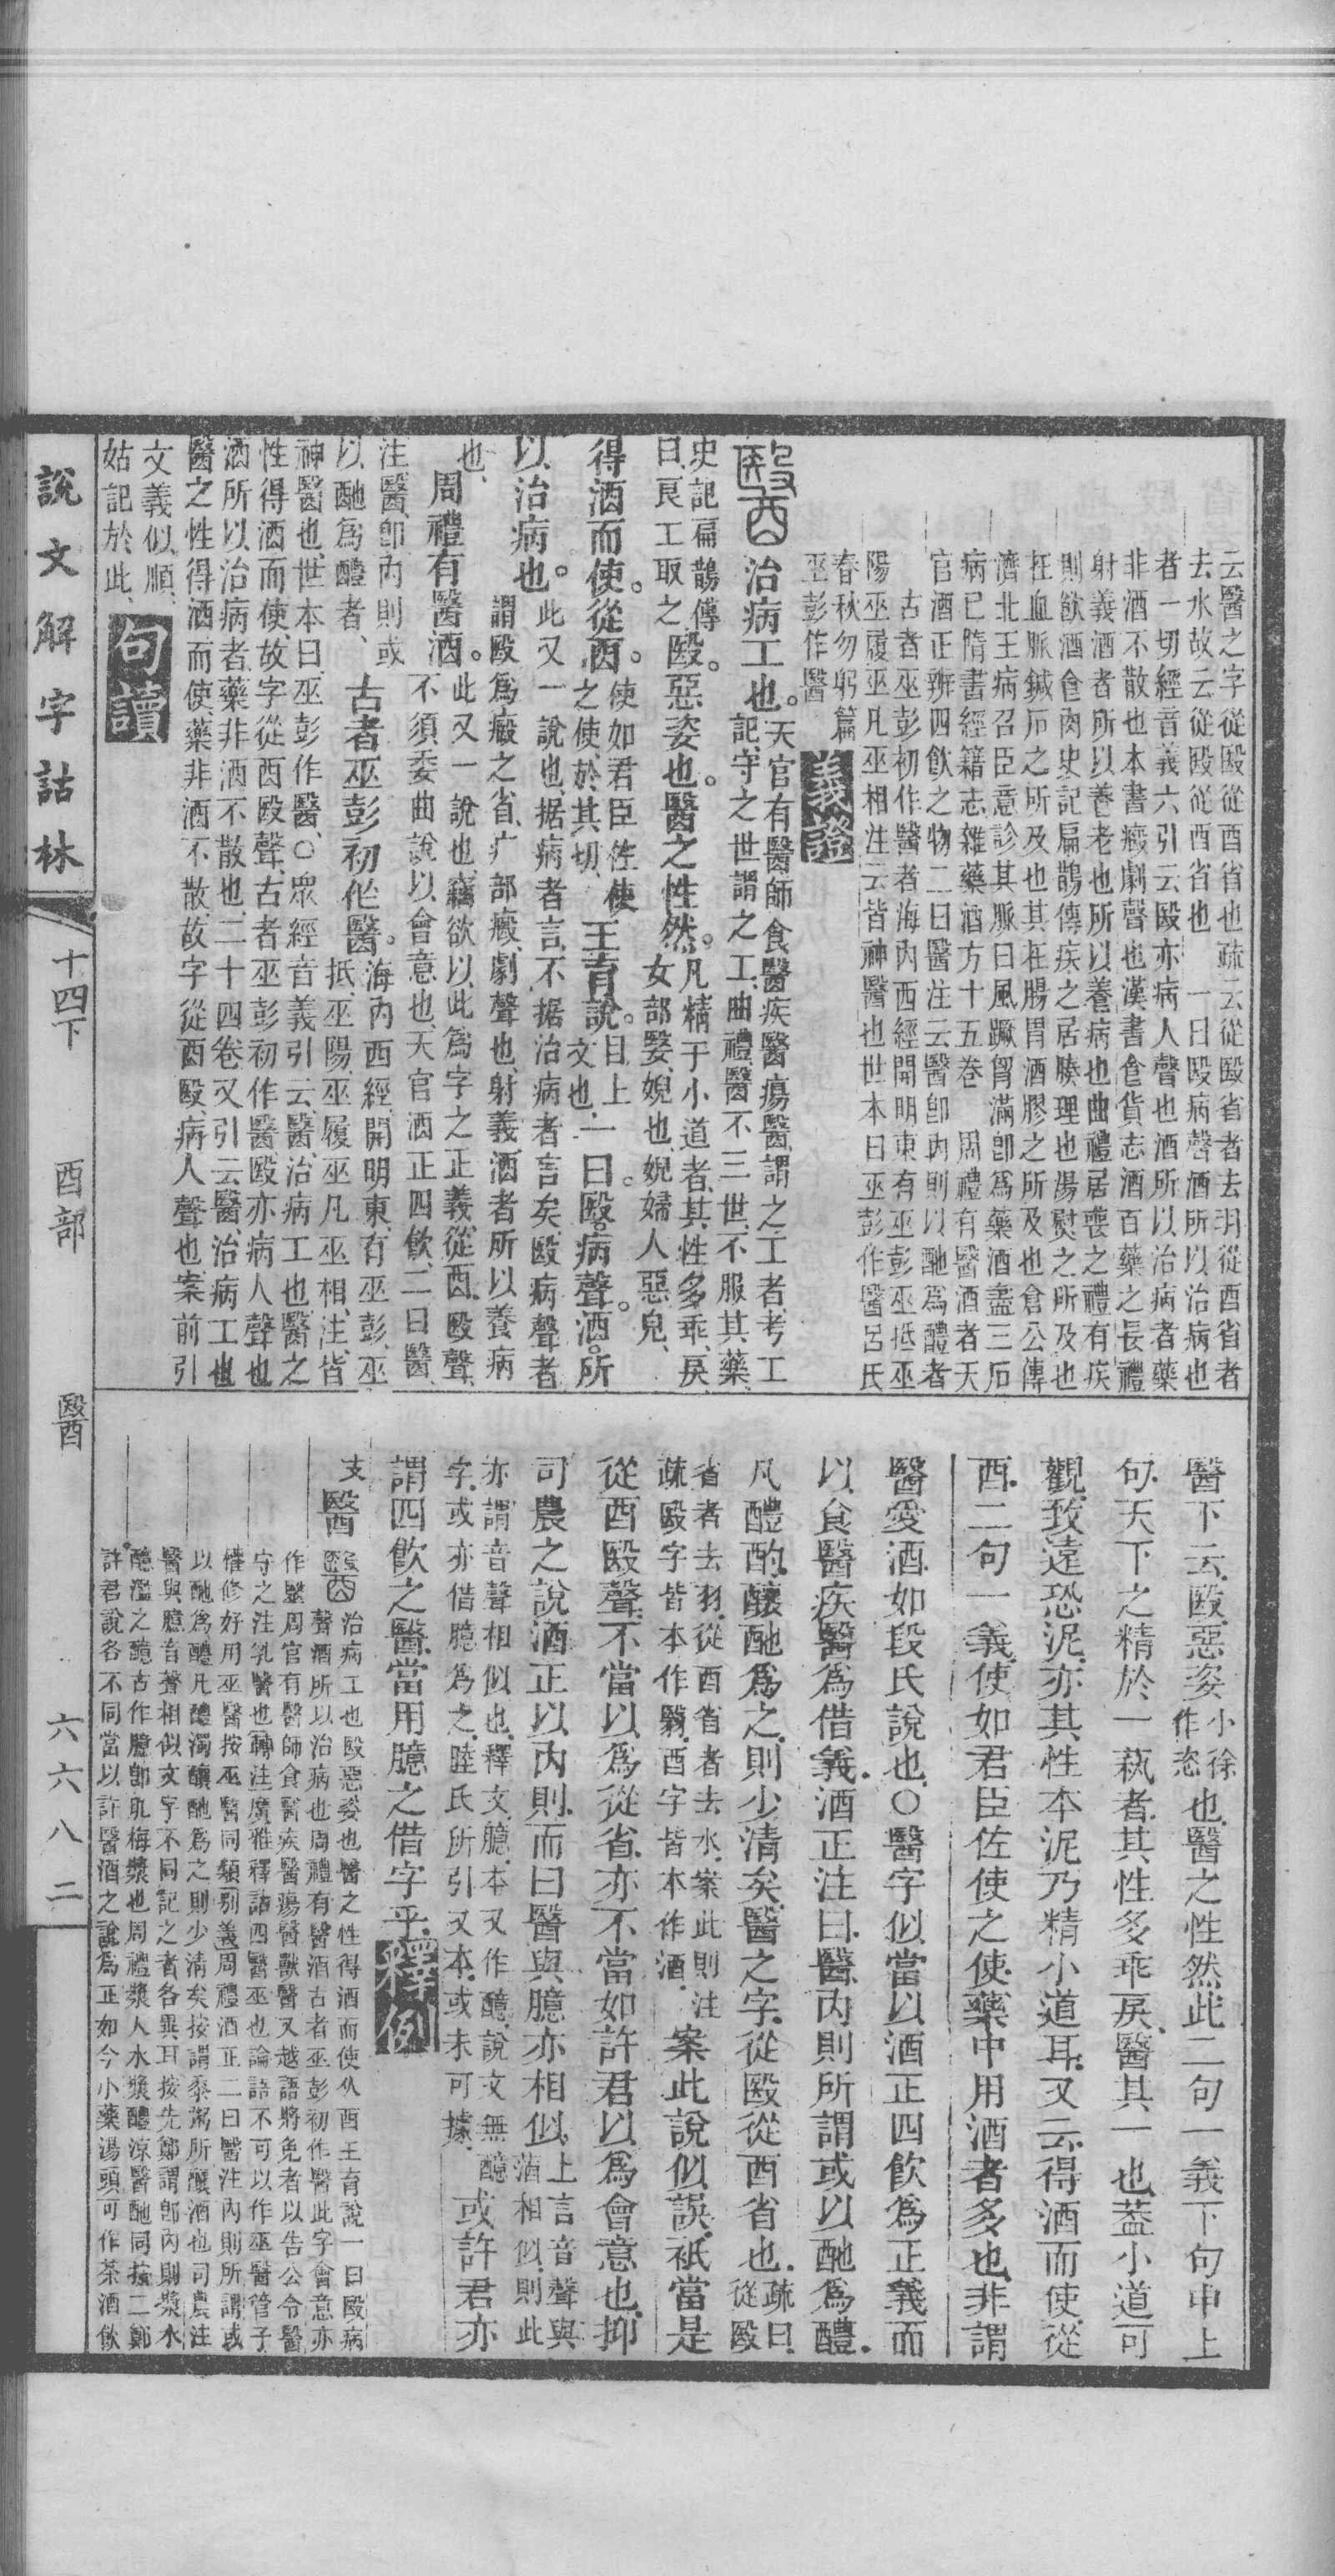 云醫之字從殹從酉省也疏云從殹省者去羽從酉省者
去水故云從殹從酉省也　一曰殹病聲酒所以治病也
者一切經音義六引云殹亦病人聲也酒所以治病者藥
非酒不散也本書癥劇聲也漢書食貨志酒百藥之長禮
射義酒者所以養老也所以養病也曲禮居喪之禮有疾
則飲酒食肉史記扁鵲傳疾之居腠理也湯熨之所及也
在血脈鍼石之所及也其在腸胃酒膠之所及也倉公傳
濟北王病召臣意診其脈曰風蹶胷滿卽爲藥酒盡三石
病已隋書經籍志雜藥酒方十五卷　周禮有醫酒者天
官酒正辨四飲之物二曰醫注云醫卽內則以酏爲醴者
古者巫彭初作醫者海內西經開明東有巫彭巫抵巫
陽巫履巫凡巫相注云皆神醫也世本曰巫彭作醫呂氏
春秋勿躬篇
巫彭作醫　義證
醫治病工也。天官有醫師食醫疾醫瘍醫、謂之工者、考工
記、守之世謂之工、曲禮、醫不三世、不服其藥、
史記扁鵲傳
曰、良工取之、殹。惡姿也。醫之性然。凡精于小道者、其性多乖戾、
女部嫛、婗也、婗婦人惡皃、
得酒而使。從酉。使如君臣佐使
之使、於其切、王育說。目上
文也、一曰。殹。病聲。酒。所
以治病也。此又一說也、据病者言、不据治病者言矣、殹病聲者
謂殹爲癥之省、疒部癥、劇聲也、射義酒者所以養病
也、
周禮有醫酒。此又一說也、竊欲以此爲字之正義、從酉、殹聲、
不須委曲說以會意也、天官酒正四飲、二曰醫、
注、醫、卽內則或
以酏爲醴者、古者巫彭初作醫。海內西經、開明東、有巫彭、巫
抵、巫陽、巫履、巫凡、巫相、注、皆
神醫也、世本曰、巫彭作醫、○眾經音義引云、醫、治病工也、醫之
性得酒而使、故字從酉殹聲、古者巫彭初作醫、殹亦病人聲也
酒所以治病者、藥非酒不散也、二十四卷又引云醫治病工也
醫之性得酒而使、藥非酒不散、故字從酉、殹、病人聲也、案前引
文義似順、
姑記於此、句讀
醫下云、殹、惡姿小徐
作恣也、醫之性然、此二句一義、下句申上
句、天下之精於一蓺者、其性多乖戾、醫其一也、蓋小道可
觀、致遠恐泥、亦其性本泥、乃精小道耳、又云、得酒而使、從
酉、二句一義、使如君臣佐使之使、藥中用酒者多也、非謂
醫愛酒、如段氏說也、○醫字似當以酒正四飲爲正義、而
以食醫疾醫爲借義、酒正注曰、醫、內則所謂或以酏爲醴、
凡醴酌、釀酏爲之、則少清矣、醫之字、從殹從酉省也、疏曰、
從殹
省者去羽、從酉省者去水、案此則注
疏殹字皆本作翳、酉字皆本作酒、案此說似誤、衹當是
從酉殹聲、不當以爲從省、亦不當如許君以爲會意也、抑
司農之說酒正以內則、而曰醫與臆亦相似、上言音聲與
酒相似、則此
亦謂音聲相似也、釋文、臆、本又作醷、說文無醷
字、或亦借臆爲之、陸氏所引又本、或未可據、或許君亦
謂四飲之醫、當用臆之借字乎、釋例
支醫治病工也殹惡姿也醫之性得酒而使从酉王育說一曰殹病
聲酒所以治病也周禮有醫酒古者巫彭初作醫此字會意亦
作毉周官有醫師食醫疾醫瘍醫獸醫又越語將免者以告公令醫
守之注乳醫也轉注廣雅釋詁四醫巫也論語不可以作巫醫管子
權修好用巫醫按巫醫同類別義周禮酒正二曰醫注內則所謂或
以酏爲醴凡醴濁釀酏爲之則少清矣按謂黍粥所釀酒也司農注
醫與臆音聲相似文字不同記之者各異耳按先鄭謂卽內則漿水
醷濫之醷古作臆卽肌梅漿也周禮漿人水漿醴涼醫酏同按二鄭
許君說各不同當以許醫酒之說爲正如今小藥湯頭可作茶酒飲
說文解字詁林　十四下　酉部　醫　六六八二